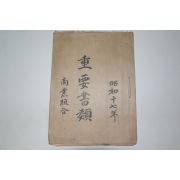 昭和十七年
重要書類
商業組合